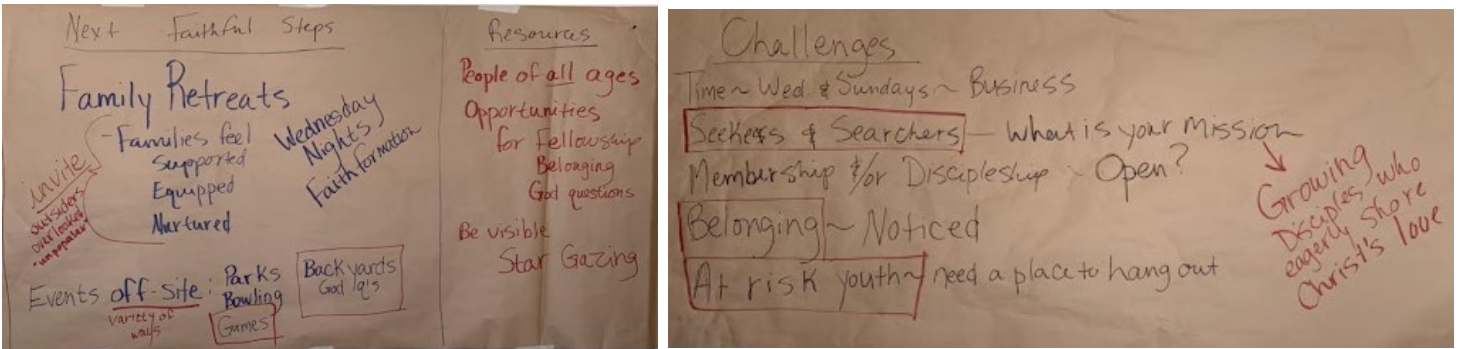 Next Faithful Steps
Family Retreats
Families feel
Supported
Equipped
Nurtured
invite
outsiders
overlooked
unpopular
Wednesday
Nights
Faith formation
Events off-site:
variety of
ways
Parks
Bowling
Games
Backyards
God
Resources
People of all ages
Opportunities
for Fellowship
Belonging
God questions
Be visible
Star Gazing
Challenges
Time ~ Wed. & Sundays ~ Business
Seekers & Searchers — What is your mission
Membership &/or Discipleship ~ Open?
Belonging ~ Noticed
At risk youth ~ need a place to hang out
Growing
Disciples who
eagerly share
Christ's love